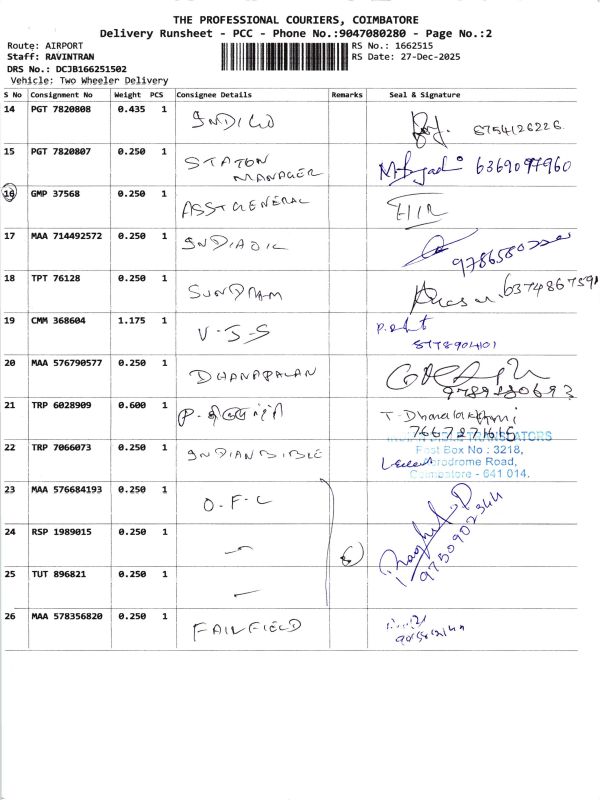 THE PROFESSIONAL COURIERS, COIMBATORE
Delivery Runsheet - PCC - Phone No.:9047080280 - Page No.:2
Route: AIRPORT
RS No.: 1662515
Staff: RAVINTRAN
RS Date: 27-Dec-2025
DRS No.: DCJB166251502
Vehicle: Two Wheeler Delivery
S No Consignment No Weight PCS Consignee Details Remarks Seal & Signature
14 PGT 7820808 0.435 1 INDIGO 8754126226
15 PGT 7820807 0.250 1 STATON MANAGER 6369097960
16 GMP 37568 0.250 1 ASST GENERAL
17 MAA 714492572 0.250 1 INDIAOIL
18 TPT 76128 0.250 1 SUNDRAM 6374867591
19 CMM 368604 1.175 1 V-S-S
20 MAA 576790577 0.250 1
21 TRP 6028909 0.600 1 7667871615
22 TRP 7066073 0.250 1 INDIAN BIBLE TRANSLATORS
Post Box No : 3218,
Aerodrome Road,
Coimbatore - 641 014.
23 MAA 576684193 0.250 1 O.F.C 9750902344
24 RSP 1989015 0.250 1
25 TUT 896821 0.250 1
26 MAA 578356820 0.250 1 FAIRFIELD